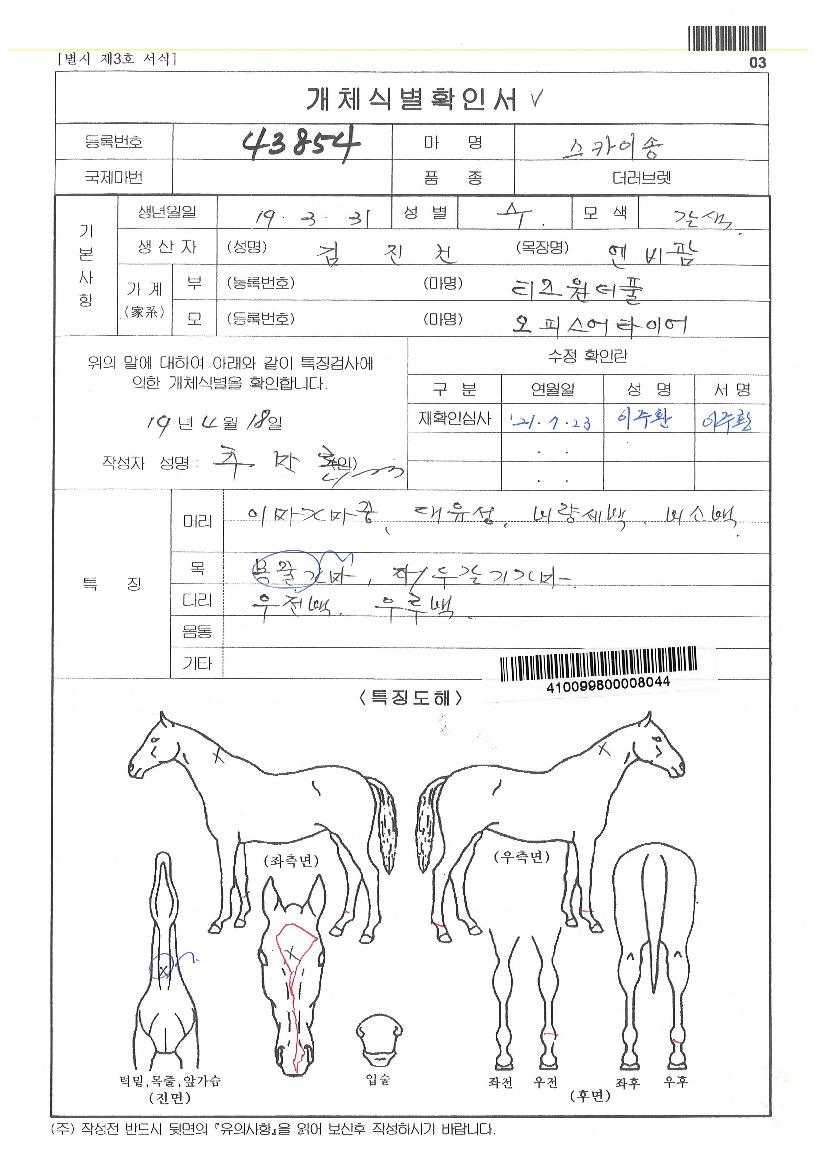 [별시 제3호 서식]
03
개체식별확인서 √
등록번호 43854 마 명 스카이송
국제마번 품 종 더러브렛
기본사항
생년월일 19. 3. 31 성별 수. 모색 갈색.
생산자 (성명) 김진천 (목장명) 엔비팜
가계 (家系) 부 (등록번호) (마명) 티즈원더풀
모 (등록번호) (마명) 오피스어타이어
위의 말에 대하여 아래와 같이 특징검사에
의한 개체식별을 확인합니다.
19년 4월 18일
작성자 성명 : (인)
수정 확인란
구 분 연월일 성 명 서 명
재확인심사 '21. 7. 23 이주환 이주환
. .
. .
특 징
머리 이마가마중, 대유성, 비량세백, 비소백.
목 목줄가마, 좌/우갈기가마
다리 우전백. 우후백.
몸통
기타
410099800008044
<특징도해>
(좌측면) (우측면)
턱밑,목줄,앞가슴
(전면)
입술
좌전 우전 좌후 우후
(후면)
(주) 작성전 반드시 뒷면의 『유의사항』을 읽어 보신후 작성하시기 바랍니다.